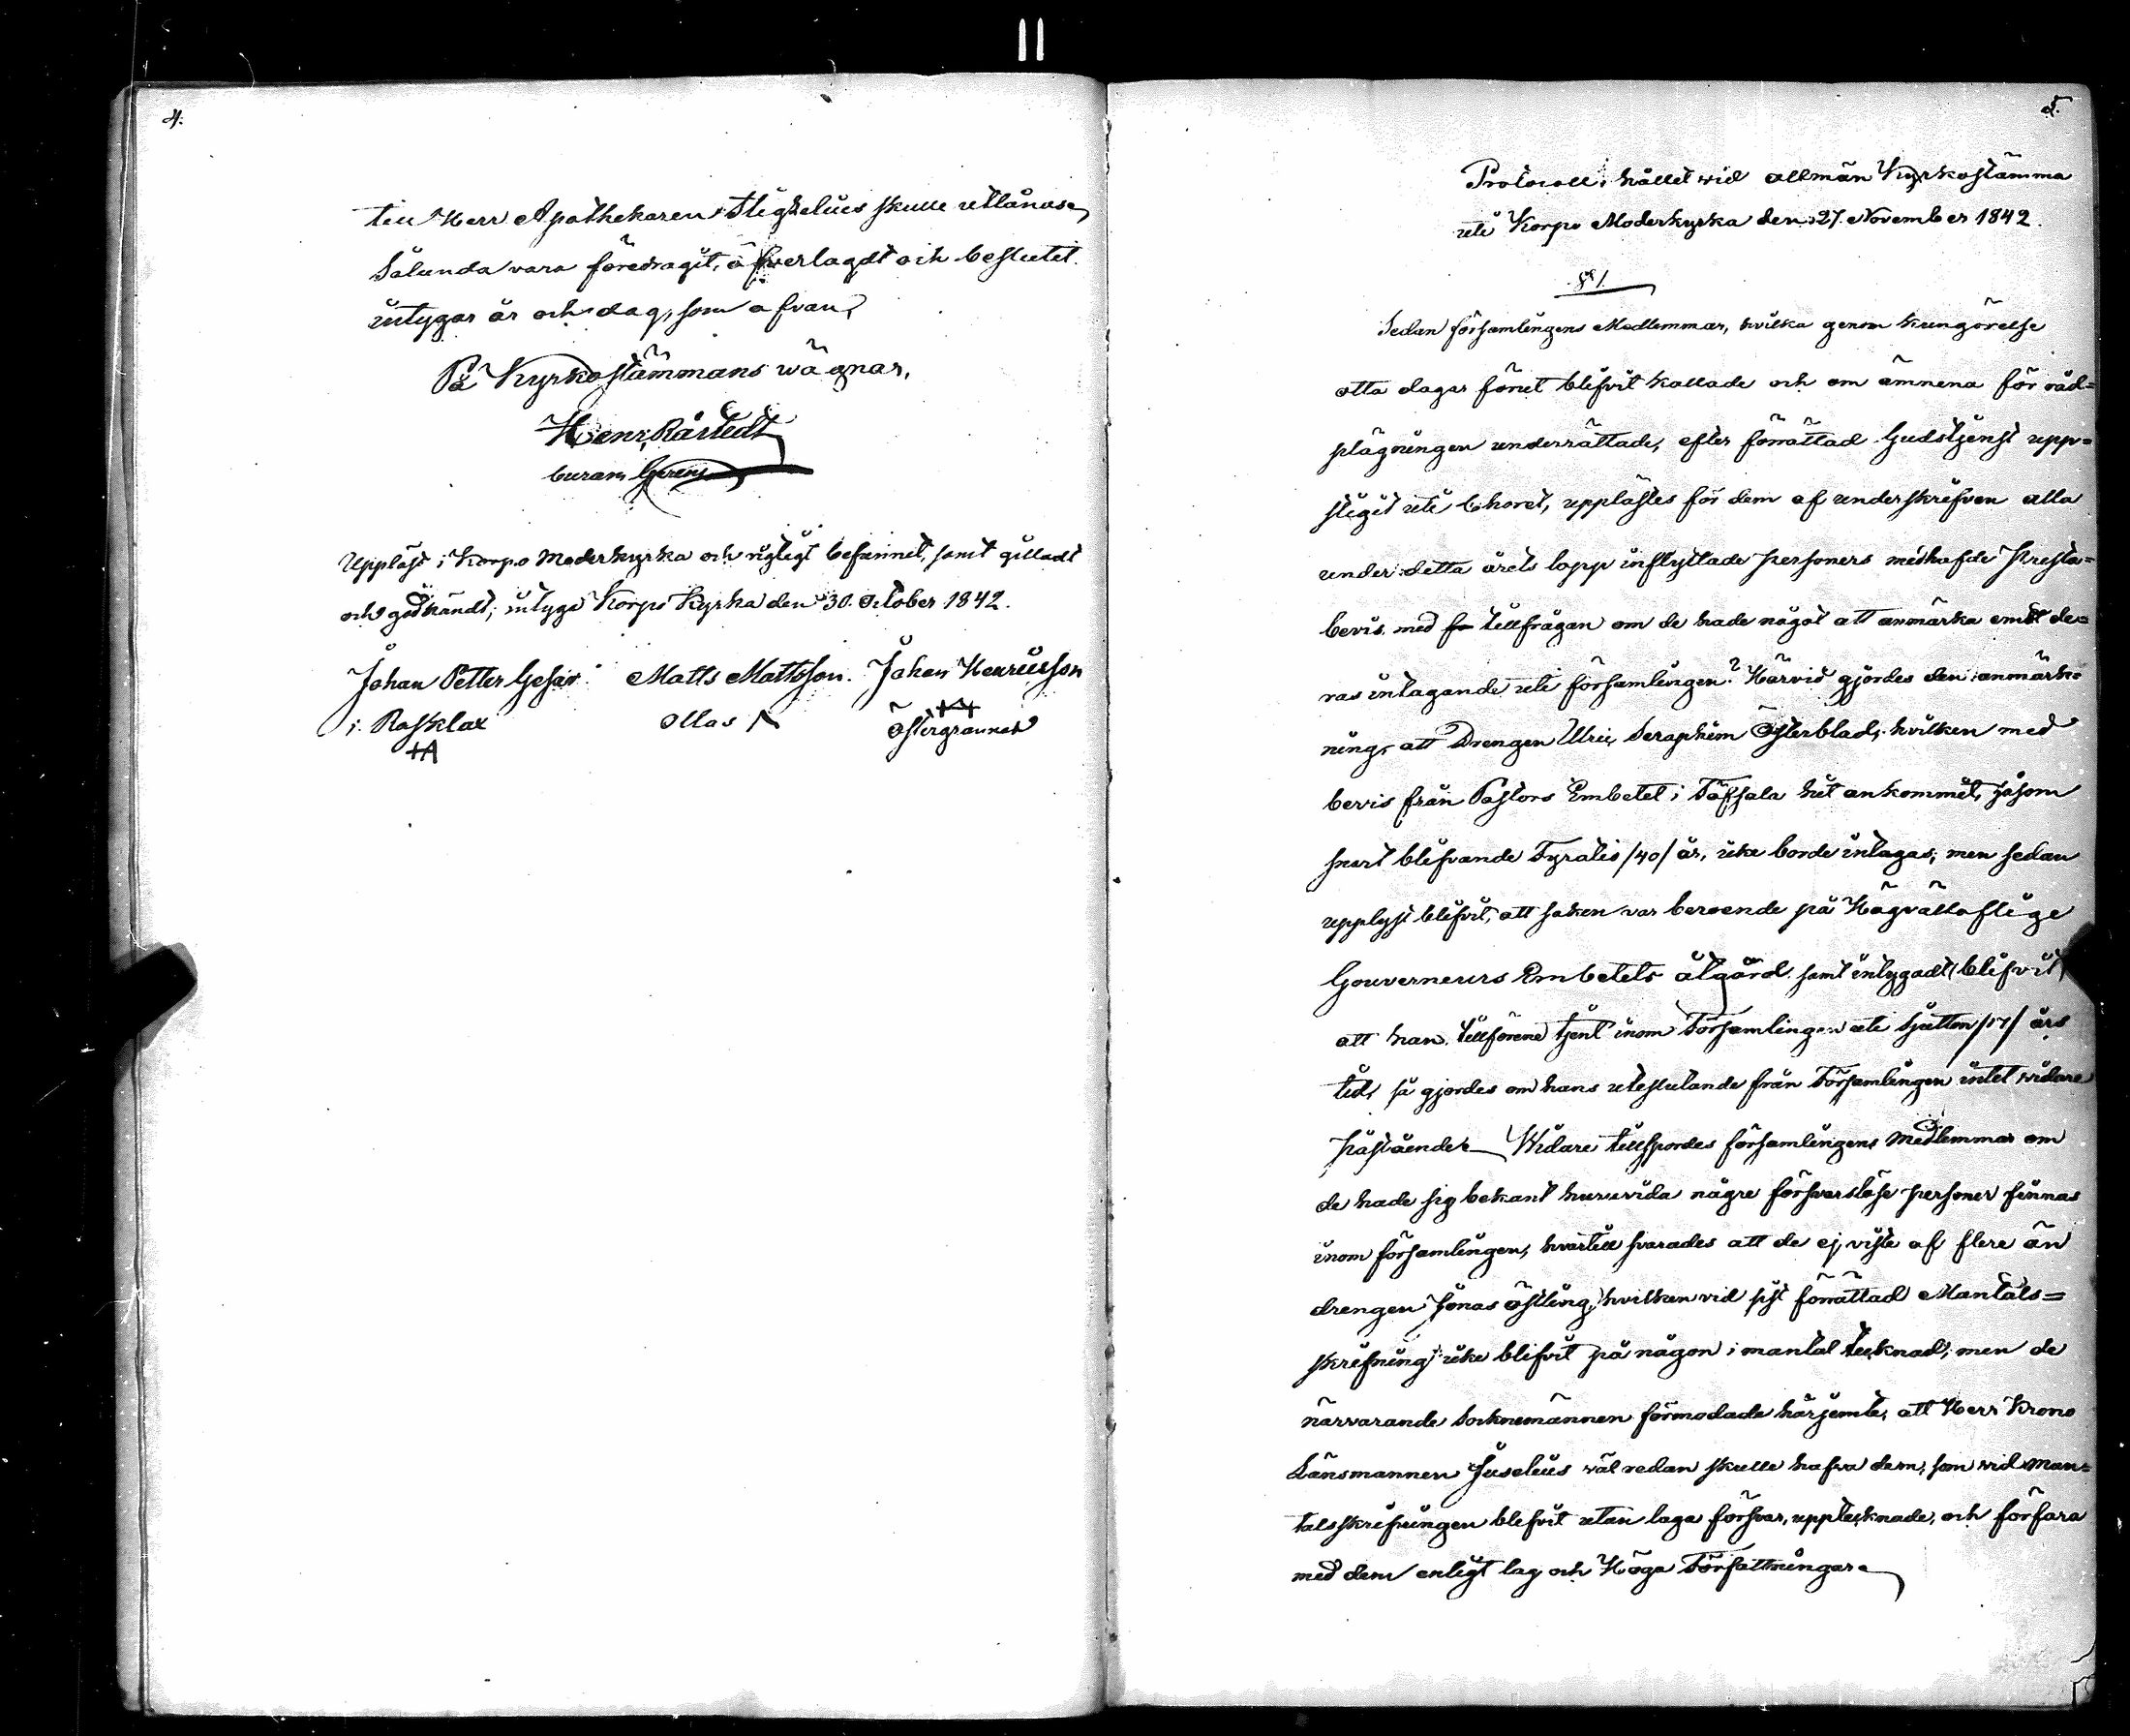 4.
till Herr Apothekaren Stigzelius skulle utlånas,
Sålunda vara föredragit, öfverlagdt och beslutet
intygar år och dag, som ofvan,
På Kyrkostämmans wägnar,
Henr. Råstedt
curam Gerens
Uppläst i Korpo Moderkyrka och rigtigt befunnet, samt gilladt
och godkändt; intyga Korpo Kyrka den 30. October 1842.
Johan Petter Johan Henricsson
Matts Mattsson.
i Rosklax
Ollas
Östergrannas
5.
Protocoll, hållet wid allmän Kyrkostämma
uti Korpo Moderkyrka den 27. November 1842.
§ 1.
Sedan församlingens Medlemmar, hvilka genom kungörelse
otta dagar förut blifvit kallade och om ämnena för råd-
plägningen underrättade, efter förrättad Gudstjenst upp-
stigit uti Choret, upplästes för dem af underskrifven alla
under detta årets lopp inflyttade personers medhafde Presta-
bevis med tillfrågan om de hade något att anmärka emot de-
ras intagande uti församlingen? Härvid gjordes den anmärk-
ning, att Drengen Ulric Seraphim Österblad, hvilken med
bevis från Pastors Embetet i Töfsala hit ankommit, såsom
snart blifvande Fyratio /40/ år, icke borde intagas; men sedan
upplyst blifvit, att saken var beroende på Högvällofliga
Gouverneurs Embetets åtgärd samt intygadt blifvit,
att han tillförene tjent inom Församlingen uti Sjutton /17/ års
tid, så gjordes om hans uteslutande från Församlingen intet widare
påstående. Widare tillspordes församlingens Medlemmar om
de hade sig bekant huruvida någre försvarslöse personer finnas
inom församlingen, hvartill svarades att de ej viste af flere än
drengen Jonas Östling, hvilken vid sist förrättad Mantals-
skrifning icke blifvit på någon i mantal tecknad; men de
närvarande Socknemännen förmodade härjemte, att Herr Krono
Länsmannen Juselius väl redan skulle hafva dem, som wid Man-
talsskrifningen blifvit utan laga försvar, upptecknade, och förfara
med dem enligt lag och Höga Författningar.